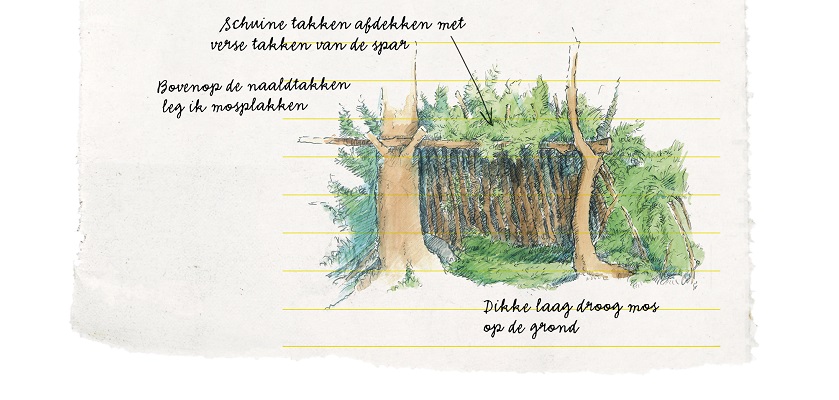 Schuine takken afdekken met
verse takken van de spar
Bovenop de naaldtakken
leg ik mosplakken
Dikke laag droog mos
op de grond